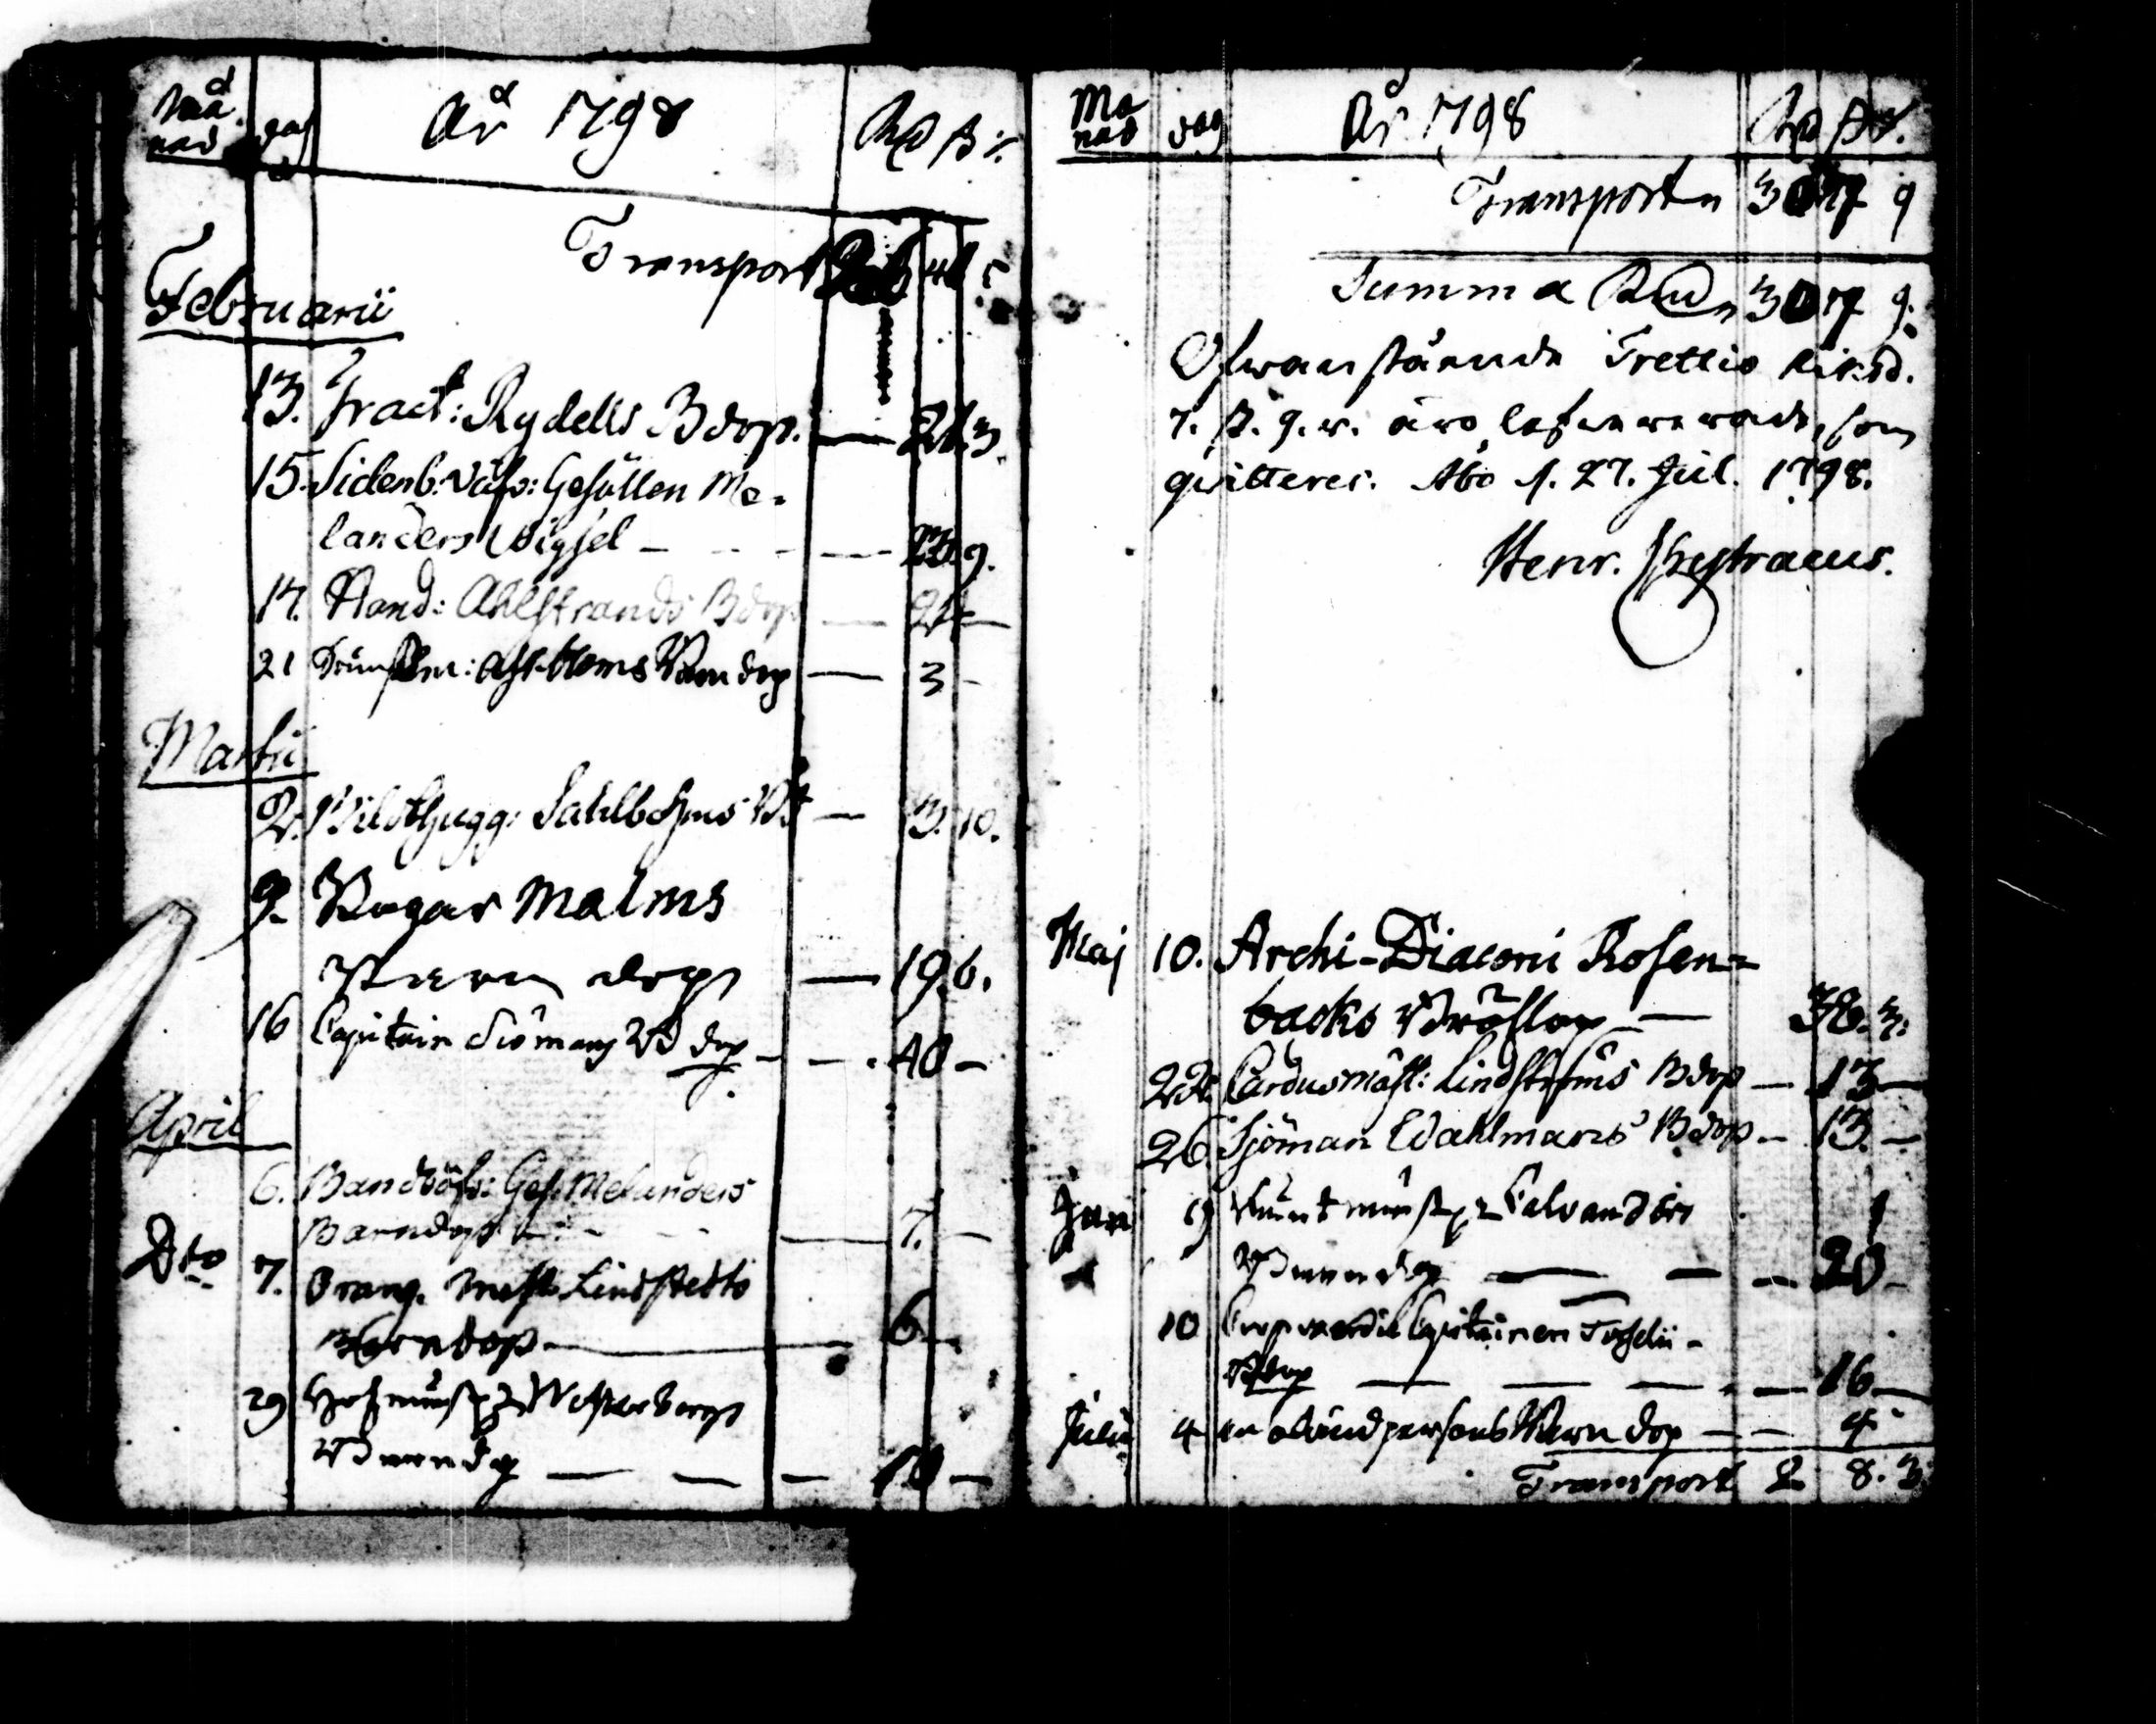 Må-
nad dag År 1798 Rd ß r.
Transport
Februarii
13. Tract: Rydells Bdop. — 21. 3.
15. Sidenb: Väfv: Gesällen Me-
landers Wigsel — 23. 9.
17. Hand: Ahlstrands Bdop — 24 —
21 Barndop — 3 —
Martii
2. Bildthugg: Sahlbohms — 3. 10.
9. Bagar Malms
Barndop — 19. 6.
16 Capitain Siömans Bdop — 40 —
April
6. Bandväfv: Ges: Melanders
Barndop — 7. —
Dto 7. Orang. Mest: Lindstedts
Barndop — 6 —
29 Westerbergs
Barndop — 10 —
Må
nad dag År 1798 Rd ß r.
Transport 30 7 9
Summa Rd 30 7 9.
Ofwanstående Trettio Riksd.
7. ß. 9. r. äro lefwererade, som
quitteres. Åbo d. 27. Jul. 1798.
Henr.
Maj 10. Archi-Diaconi Rosen-
backs Bröllop — 38. 3.
22. Cardusmäst: Lindströms Bdop — 13 —
26. Sjöman Wahlmans Bdop — 13. —
Jun 9 Calvanders
Barndop — 20 —
10 Capitainen
Bdop — 16 —
Julii 4 Barndop — 4
Transport 2 8. 3